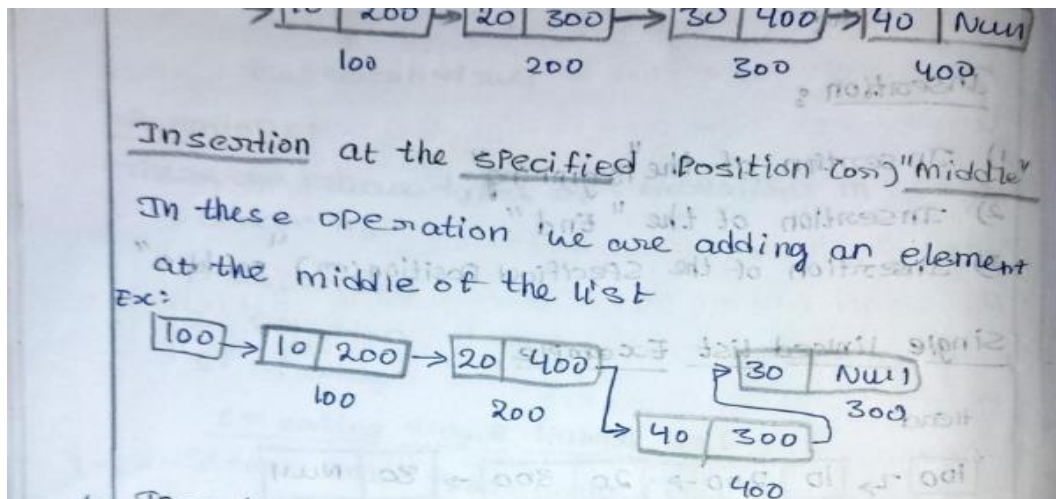 10 200 → 20 300 → 30 400 → 40 Null
100 200 300 400
Insertion at the specified Position (or) "middle"
In these operation we are adding an element
at the middle of the list
Ex:
100 → 10 200 → 20 400 30 Null
100 200 300
40 300
400